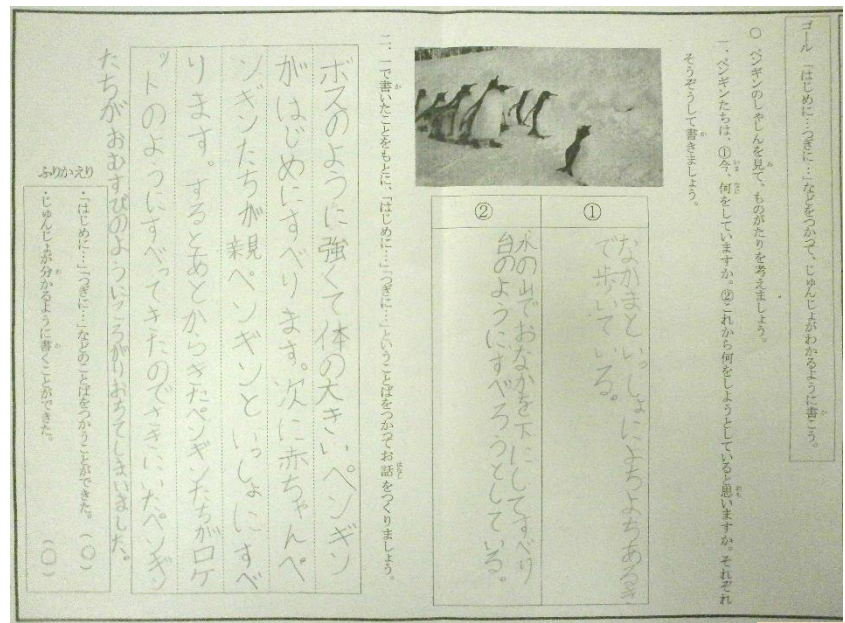 ゴール 「はじめに…つぎに…」などをつかって、じゅんじょがわかるように書こう。
○ ペンギンのしゃしんを見て、ものがたりを考えましょう。
一、ペンギンたちは、①今、何をしていますか。②これから何をしようとしていると思いますか。それぞれ
そうぞうして書きましょう。
①
なかまといっしょによちよちあるき
で歩いている。
②
氷の山でおなかを下にしてすべり
台のようにすべろうとしている。
二、一で書いたことをもとに、「はじめに…」「つぎに…」ということばをつかってお話をつくりましょう。
ボスのように強くて体の大きいペンギン
がはじめにすべります。次に赤ちゃんペ
ンギンたちが親ペンギンといっしょにすべ
ります。するとあとからきたペンギンたちがロケ
ットのようにすべってきたのでさきにいたペンギン
たちがおむすびのようにころがりおちてしまいました。
ふりかえり
・「はじめに…」「つぎに…」などのことばをつかうことができた。 (○)
・じゅんじょが分かるように書くことができた。 (○)